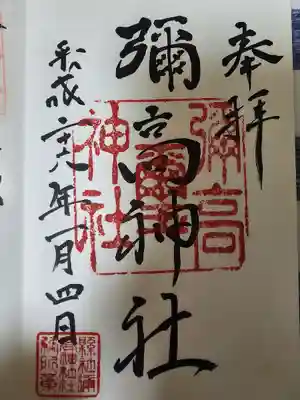 奉拝
彌高神社
平成二十八年一月四日
彌高
神社
縣社彌
高神社社
務所章